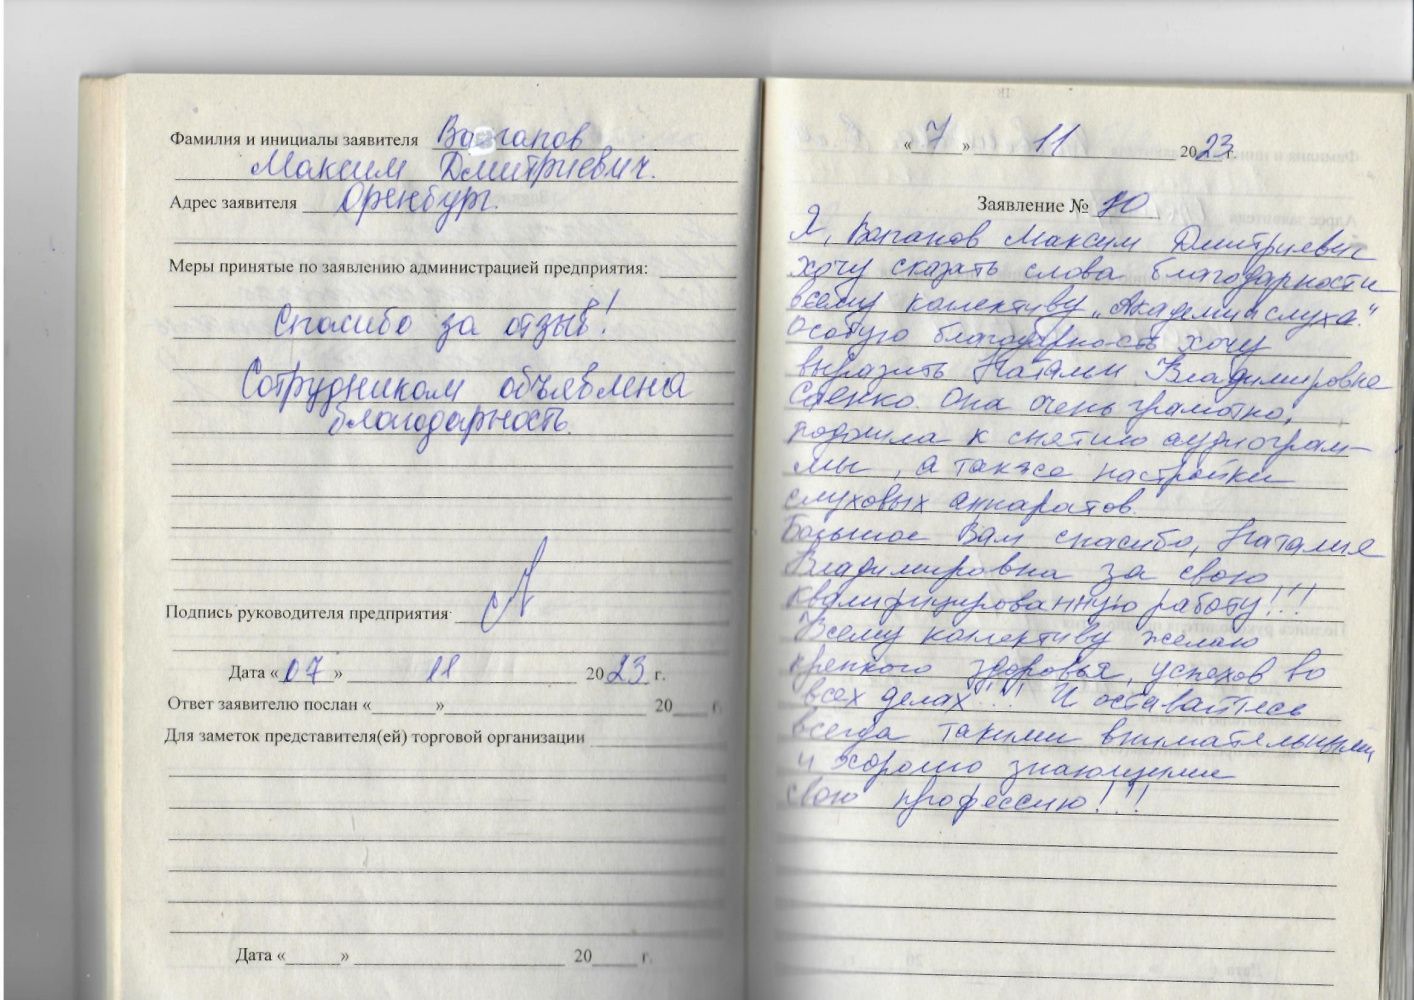 Фамилия и инициалы заявителя
Максим Дмитриевич.
Адрес заявителя Оренбург.
Меры принятые по заявлению администрацией предприятия:
Спасибо за отзыв!
Сотрудником объявлена
благодарность.
Подпись руководителя предприятия
Дата «07» 11 2023 г.
Ответ заявителю послан «» 20 г.
Для заметок представителя(ей) торговой организации
Дата «» 20 г.
«7» 11 2023 г.
Заявление № 10
Я, Максим Дмитриевич
хочу сказать слова благодарности
всему колективу „Академии слуха."
Особую благодарность хочу
выразить Натальи Владимировне
Она очень грамотно,
подошла к снятию аудиограм-
мы, а также настройки
слуховых аппаратов.
Большое Вам спасибо, Наталия
Владимировна за свою
квалифицированную работу!!!
Всему колективу желаю
крепкого здоровья, успехов во
всех делах!!! И оставайтесь
всегда такими внимательными
и хорошо знающими
свою профессию!!!